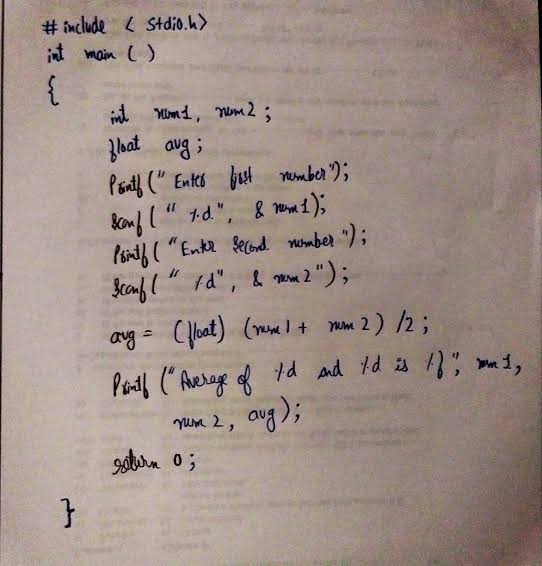 # include < stdio.h>
int main ( )
{
int num1, num2 ;
float avg ;
Printf (" Enter first number");
Scanf ( " %d", & num1);
Printf ( "Enter Second number ");
Scanf ( " %d", & num2 ");
avg = (float) (num1 + num2 ) /2 ;
Printf ("Average of %d and %d is %f", num1,
num2, avg );
return 0 ;
}